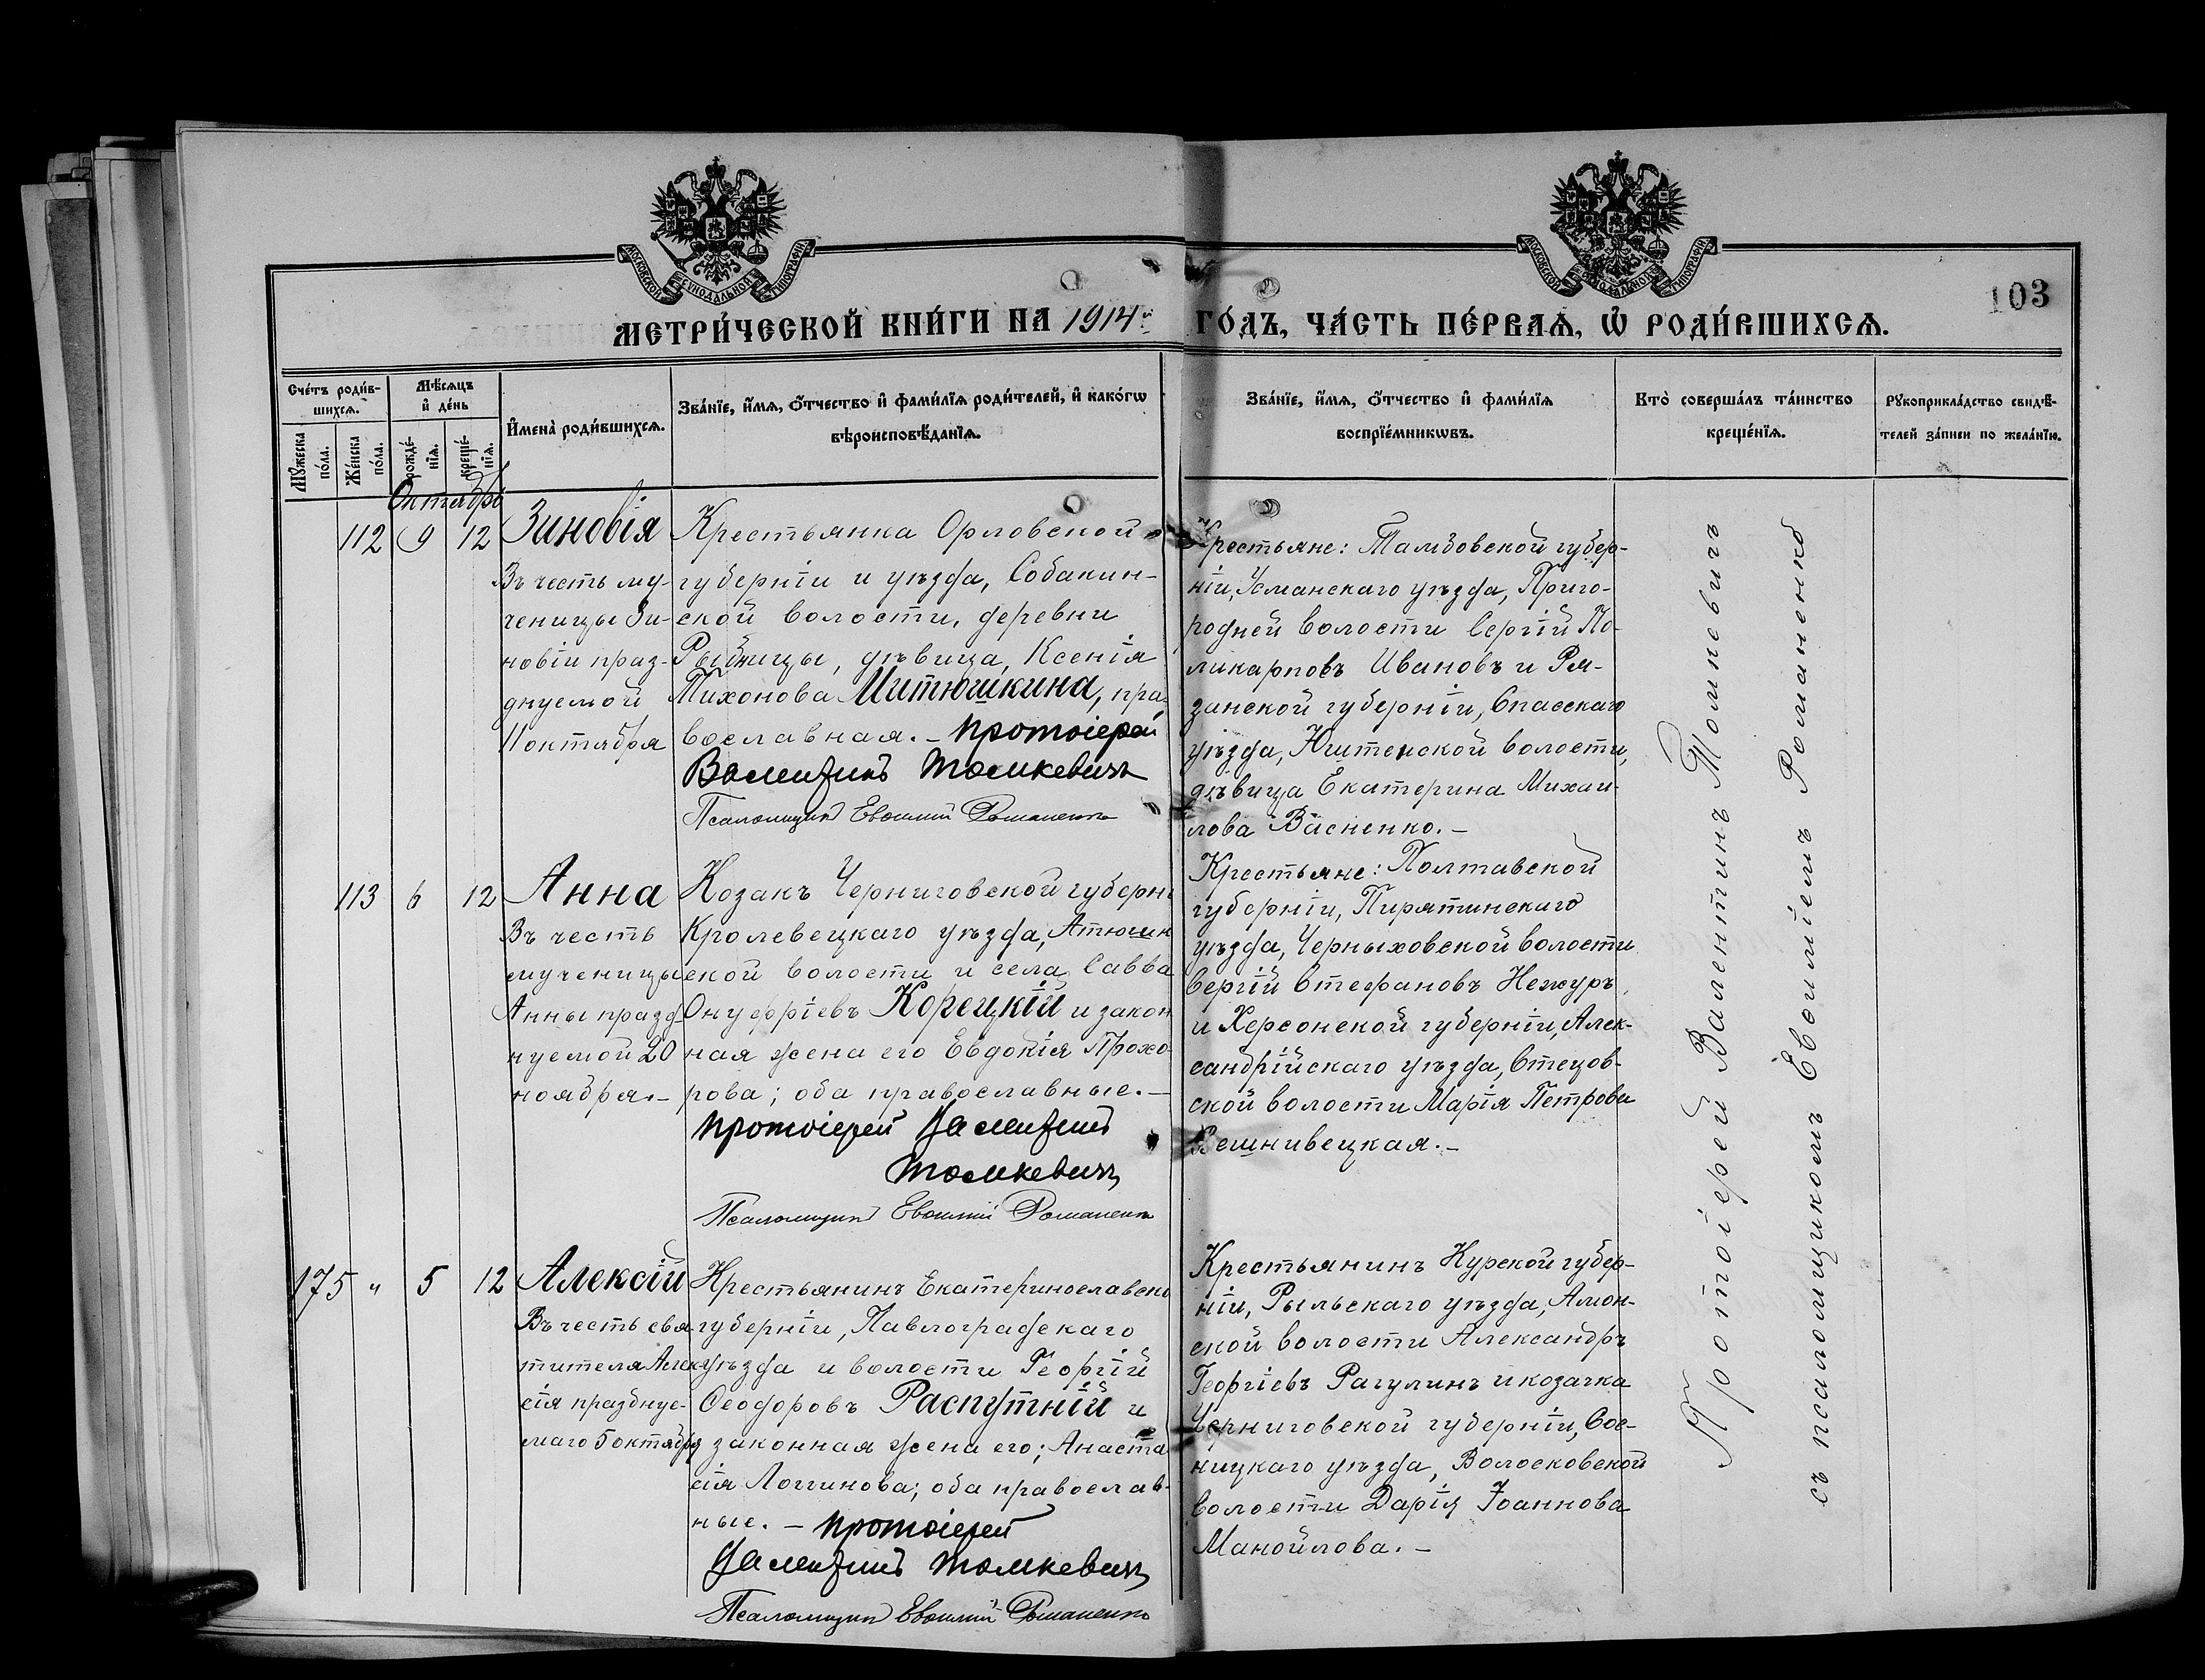 МОСКОВСКОЙ СѴНОДАЛЬНОЙ ТИПОГРАФІИ
МОСКОВСКОЙ СѴНОДАЛЬНОЙ ТИПОГРАФІИ
103
МЕТРИ́ЧЕСКОЙ КНИ́ГИ НА 1914й ГО́ДЪ, ЧА́СТЬ ПЕ́РВАѦ, Ѡ҆ РОДИ́ВШИХСѦ.
Сче́тъ роди́в-
шихсѧ.
Мѣ́сѧцъ
и҆ де́нь
Мꙋ́жеска
по́ла.
Же́нска
по́ла.
рожде́-
нїѧ.
креще́-
нїѧ.
И҆мена̀ роди́вшихсѧ.
Зва́нїе, и҆́мѧ, ѻ҆́тчество и҆ фами́лїѧ роди́телей, и҆ како́гѡ
вѣроисповѣ́данїѧ.
Зва́нїе, и҆́мѧ, ѻ҆́тчество и҆ фами́лїѧ
воспрїе́мникѡвъ.
Кто̀ соверша́лъ та́инство
креще́нїѧ.
Рꙋкоприкла́дство свидѣ́-
телей за́писи по жела́нїю.
Октябрь
112 9 12 Зиновія
Въ честь му-
ченицы Зи-
новіи праз-
днуемой
11 октября
Крестьянка Орловской
губерніи и уѣзда, Собакин-
ской волости, деревни
Рыбницы, дѣвица, Ксенія
Тихонова Митюшкина, пра-
вославная. – Протоіерей
Валентинъ Томкевичъ
Псаломщикъ Евѳимій Романенко
Крестьяне: Тамбовской губер-
ніи, Усманскаго уѣзда, Приго-
родней волости Сергій По-
ликарповъ Ивановъ и Ря-
занской губерніи, Спасскаго
уѣзда, волости,
дѣвица Екатерина Михаи-
лова Васненко. –
113 6 12 Анна
Въ честь
мученицы
Анны празд-
нуемой 20
ноября. –
Козакъ Черниговской губерні
Кролевецкаго уѣзда, Атюшин
ской волости и села, Савва
Онуфріевъ Корецкій и закон
ная жена его Евдокія Прохо-
рова; оба православные. –
Протоіерей Валентинъ
Томкевичъ
Псаломщикъ Евѳимій Романенко
Крестьяне: Полтавской
губерніи, Пирятинскаго
уѣзда, Черныховской волости
Сергій Стефановъ Нежуръ,
и Херсонской губерніи, Алек-
сандрійскаго уѣзда, Стецов-
ской волости Марія Петрова
Вешнивецкая. –
175 " 5 12 Алексій
Въ честь свя-
тителя Алек-
сія празднуе-
маго 5 октября
Крестьянинъ Екатеринославско
губерніи, Павлоградскаго
уѣзда и волости Георгій
Ѳеодоровъ Распутній и
законная жена его; Анаста
сія Логгинова; оба православ-
ные. – Протоіерей
Валентинъ Томкевичъ
Псаломщикъ Евѳимій Романенко
Крестьянинъ Курской губер-
ніи, Рыльскаго уѣзда, Амон-
ской волости Александръ
Георгіевъ Рагулинъ и козачка
Черниговской губерніи, Сос-
ницкаго уѣзда, Волосковской
волости Дарія Іоаннова
Манойлова. –
Протоіерей Валентинъ Томкевичъ
съ псаломщикомъ Евѳиміемъ Романенко